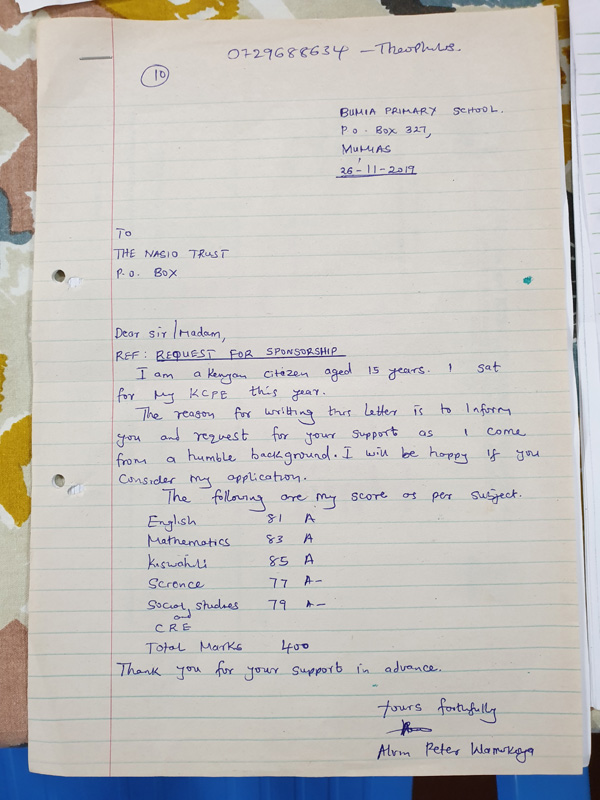 0729688634 – Theophilus.
10
BUMIA PRIMARY SCHOOL.
P.O. BOX 327,
MUMIAS
26-11-2019
TO
THE NASIO TRUST
P.O. BOX
Dear Sir/Madam,
REF: REQUEST FOR SPONSORSHIP
I am a Kenyan Citizen aged 15 years. I sat
for my KCPE this year.
The reason for writting this letter is to inform
you and request for your support as I come
from a humble background. I will be happy if you
consider my application.
The following are my score as per subject.
English 81 A
Mathematics 83 A
Kiswahili 85 A
Science 77 A-
Social studies 79 A-
and
CRE
Total Marks 400
Thank you for your support in advance.
Yours faithfully
Alvin Peter Wamukoya